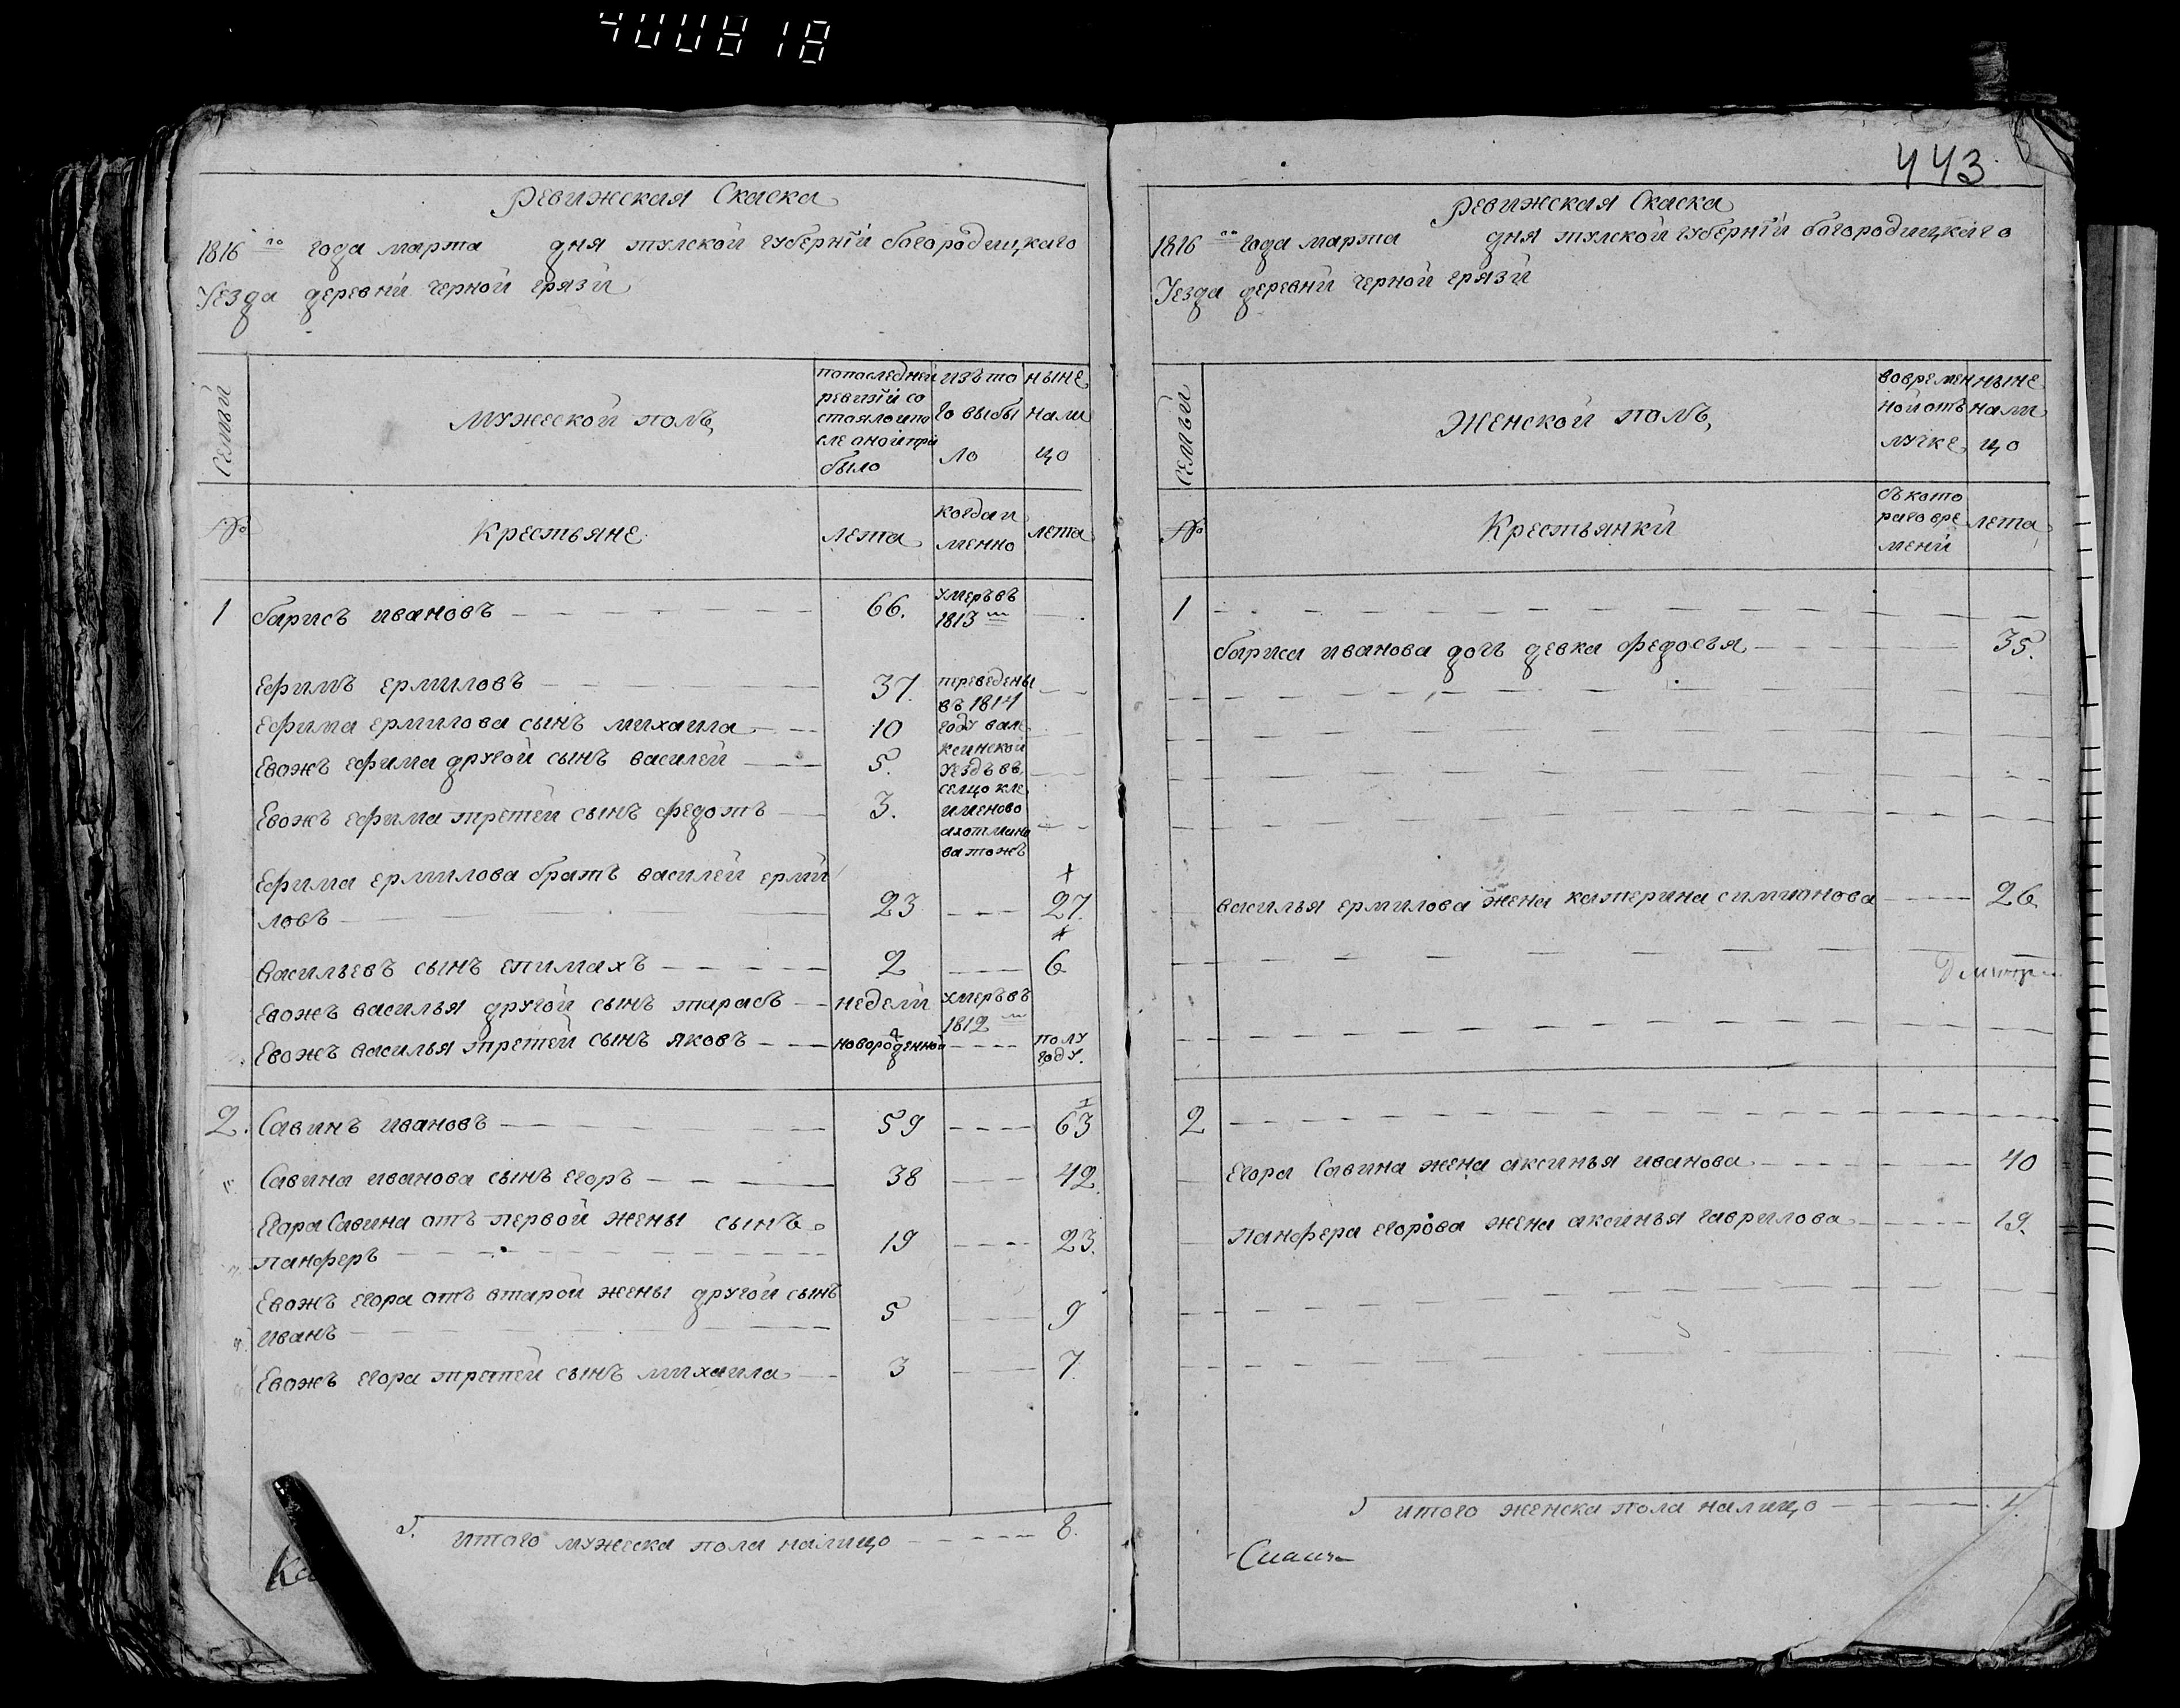 4000818
443
Ревижская Скаска
1816 го года марта дня тулской губернїй богородицкаго
Уезда деревнй черной грязй
Семьй
мужеской полъ
попоследней
ревизїй со
стояло ипо
сле оной при
было
изъ то
го выбы
ло
ныне
нали
цо
№
Крестьяне
лета
когда и
менно
лета
1 барисъ ивановъ 66. умеръ въ
1813 м
Ефимъ ермиловъ 37. переведены
въ 1814
Ефима ермилова сынъ михаила 10 году вале
ксинской
Евожъ ефима другой сынъ василей 5. уездъ въ
селцо кле
Евожъ ефима третей сынъ федотъ 3. именово
ахотманово
ва тожъ
Ефима ермилова братъ василей ермй
ловъ 23 27.
васильевъ сынъ епимахъ 2 6
Евожъ василья другой сынъ тарасъ неделй умеръ въ
1812 м
Евожъ василья третей сынъ яковъ новорожденной полу
году.
2. Савинъ ивановъ 59 63
Савина иванова сынъ егоръ 38 42.
Егора Савина отъ первой жены сынъ
панферъ 19 23.
Евожъ егора отъ второй жены другой сынъ
иванъ 5 9
Евожъ егора третей сынъ михаила 3 7.
итого мужеска пола налицо 8.
Ревижская Скаска
1816 го года марта дня тулской губернїй богородицкаго
Уезда деревнй черной грязй
семьй
Женской полъ
вовремен
ной отъ
лучке
ныне
нали
цо
№
Крестьянкй
съ кото
раго вре
менй
лета
1
бариса иванова дочь девка федосья 35.
василья ермилова жена катерина симионова 26
2
Егора Савина жена аксинья иванова 40
Панфера егорова жена аксинья гаврилова 19.
итого женска пола налицо 4